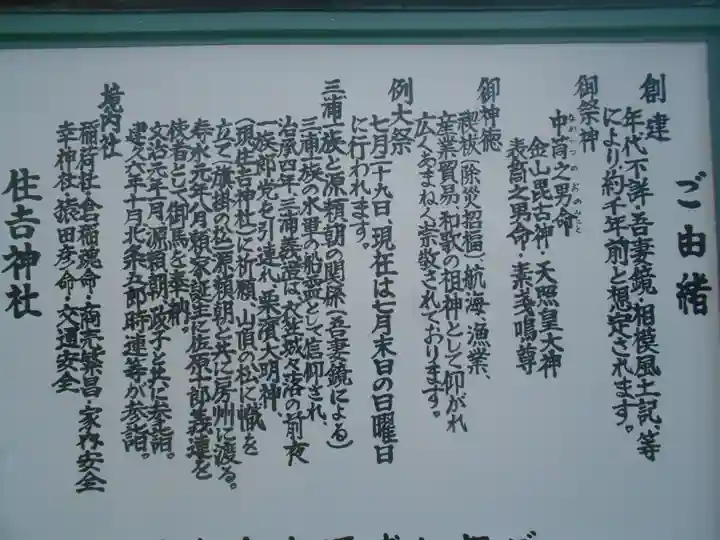 ご由緒
創建
年代不詳・吾妻鏡・相模風土記、等
により約千年前と想定されます。
御祭神
なかつつのおのみこと
中筒之男命
金山毘古神・天照皇大神
表筒之男命・素戔鳴尊
御神徳
禊祓(除災招福)、航海、漁業、
産業貿易、和歌の祖神として仰がれ
広くあまねく崇敬されております。
例大祭
七月二十九日、現在は七月末日の日曜日
に行われます。
三浦一族と源頼朝の関係(吾妻鏡による)
三浦一族の水軍の船霊として信仰され、
治承四年、三浦義澄は、衣笠城々落の前夜
一族郎党を引連れ、栗濱大明神
(現住吉神社)に祈願、山頂の松に幟を
立て(旗掛の松)源頼朝と共に房州に渡る。
寿永元年八月頼家誕生に佐原十郎義連を
使者として御馬を奉納。
文治元年一月、源頼朝、政子と共に参詣。
建久六年十月北条五郎時連等が参詣。
境内社
稲荷社・倉稲魂命・商売繁昌・家内安全
幸神社・猿田彦命・交通安全
住吉神社